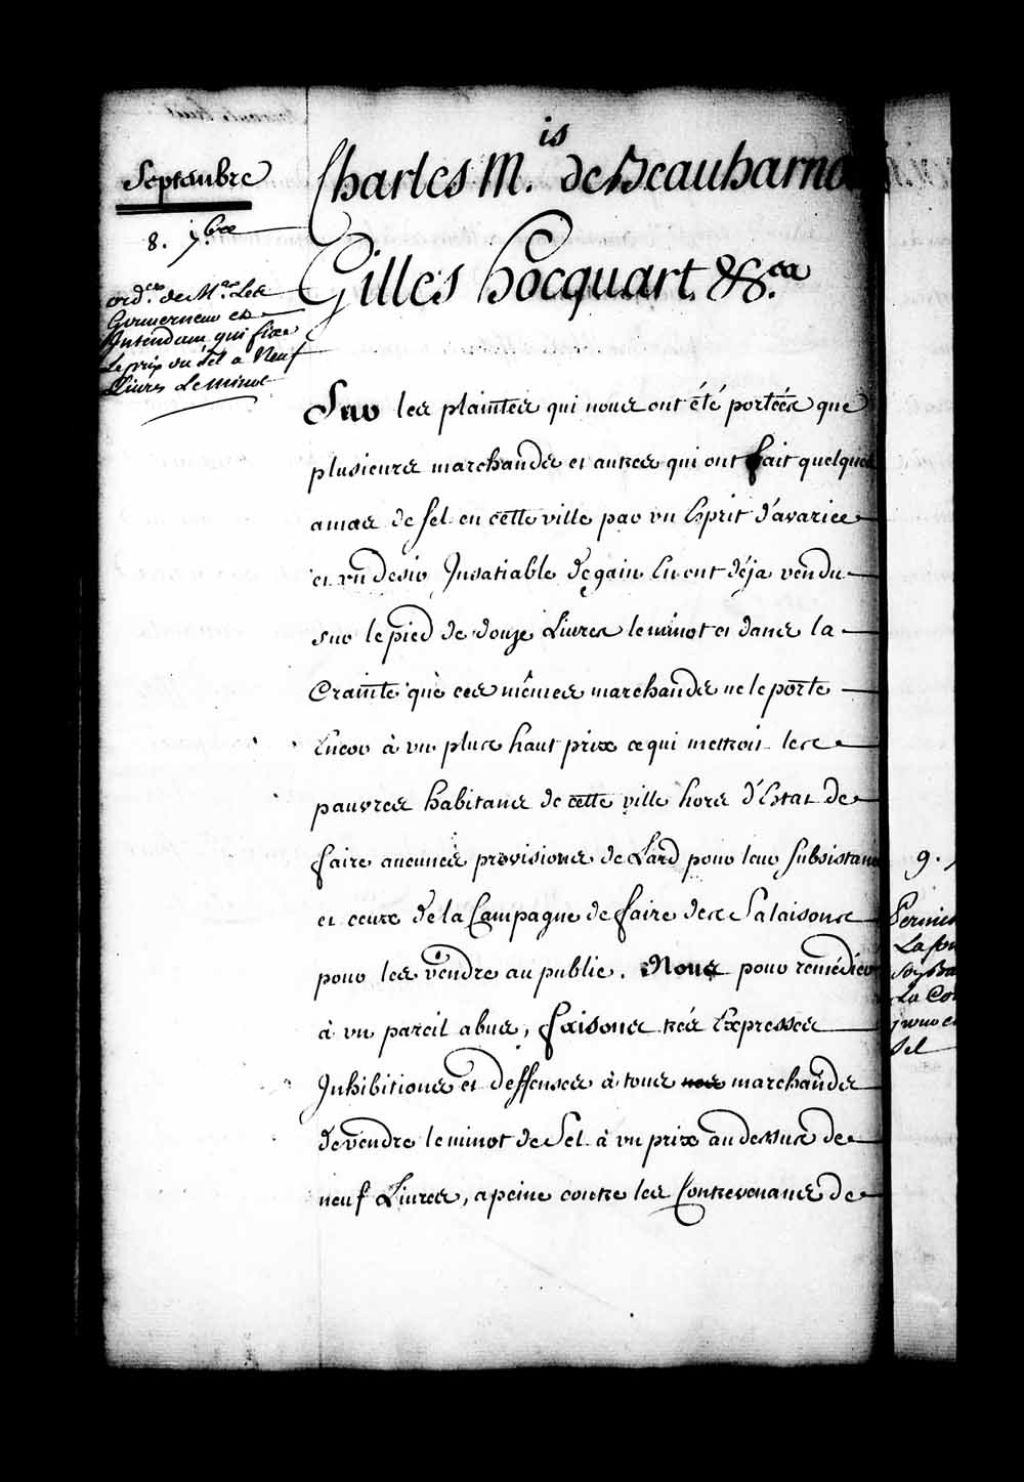 Septembre
8. 7.bre
ord.ce de M.rs Les
Gouverneur et
Intendant qui fixe
le prix du sel a Neuf
Livres Le minot
Charles M.is de Beauharno
Gilles hocquart. &c.ea
Sur les plaintes qui nous ont été portées que
plusieurs marchands et autres qui ont fait quelques
amas de sel en cette ville par un Esprit d'avarice
et un desir Insatiable de gain En ont déja vendu
sur le pied de douze Livres le minot et dans la
Crainte que ces mêmes marchands ne le porte
Encor à un plus haut prix ce qui mettroit les
pauvres habitans de cette ville hors d'Estat de
faire aucunes provisions de Lard pour leur subsistan
et ceux de la Campagne de faire des Salaisons
pour les vendre au public. Nous pour remédier
à un pareil abus, faisons trés Expresses
Inhibitions et deffenses à tous nos marchands
de vendre le minot de Sel à un prix au dessus de
neuf Livres, a peine contre les Contrevenans de
9.
La
La Co
Sel